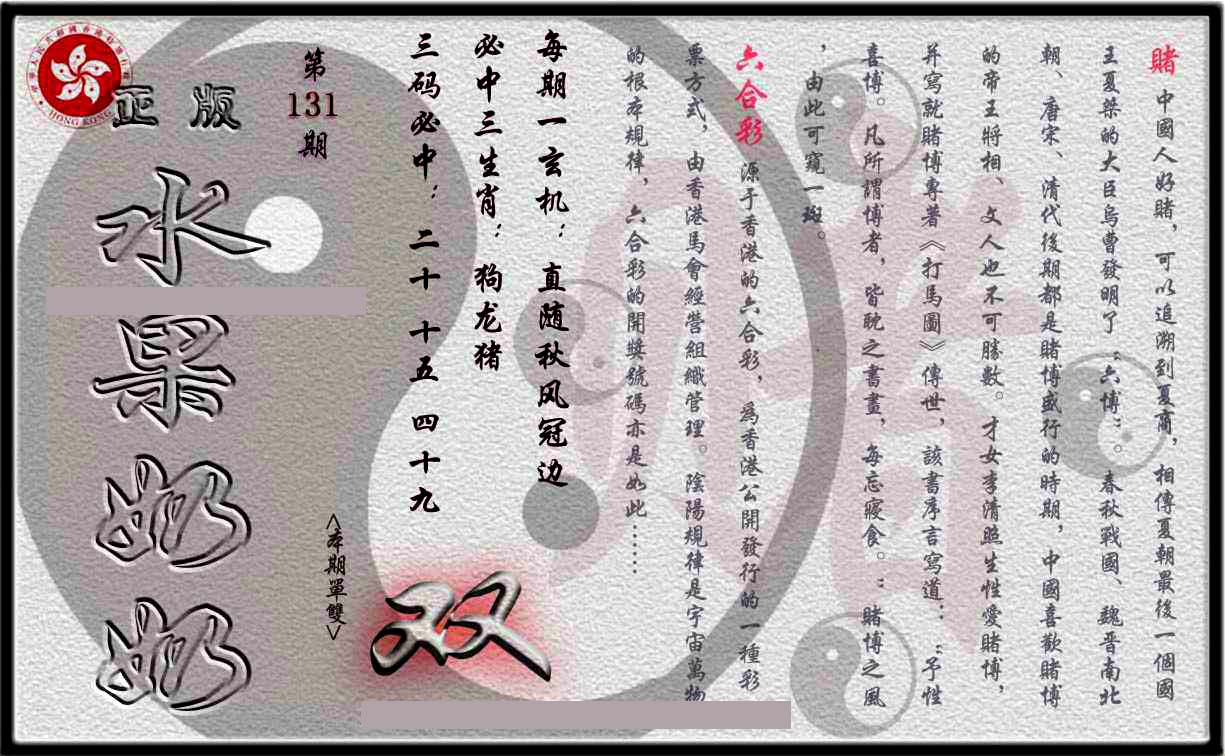 賭 中國人好賭，可以追溯到夏商，相傳夏朝最後一個國
王夏桀的大臣烏曹發明了“六博”。春秋戰國、魏晋南北
朝、唐宋、清代後期都是賭博盛行的時期，中國喜歡賭博
的帝王將相、文人也不可勝數。才女李清照生性愛賭博，
并寫就賭博專著《打馬圖》傳世，該書序言寫道：“予性
喜博。凡所謂博者，皆耽之書畫，每忘寢食。”賭博之風
，由此可窺一斑。
六合彩 源于香港的六合彩，為香港公開發行的一種彩
票方式，由香港馬會經營組織管理。陰陽規律是宇宙萬物
的根本規律，六合彩的開獎號碼亦是如此……
每期一玄机：直随秋风冠边
必中三生肖：狗龙猪
三码必中：二十 十五 四十九
第
131
期
<本期單雙>
双
正版
水果奶奶
HONG KONG